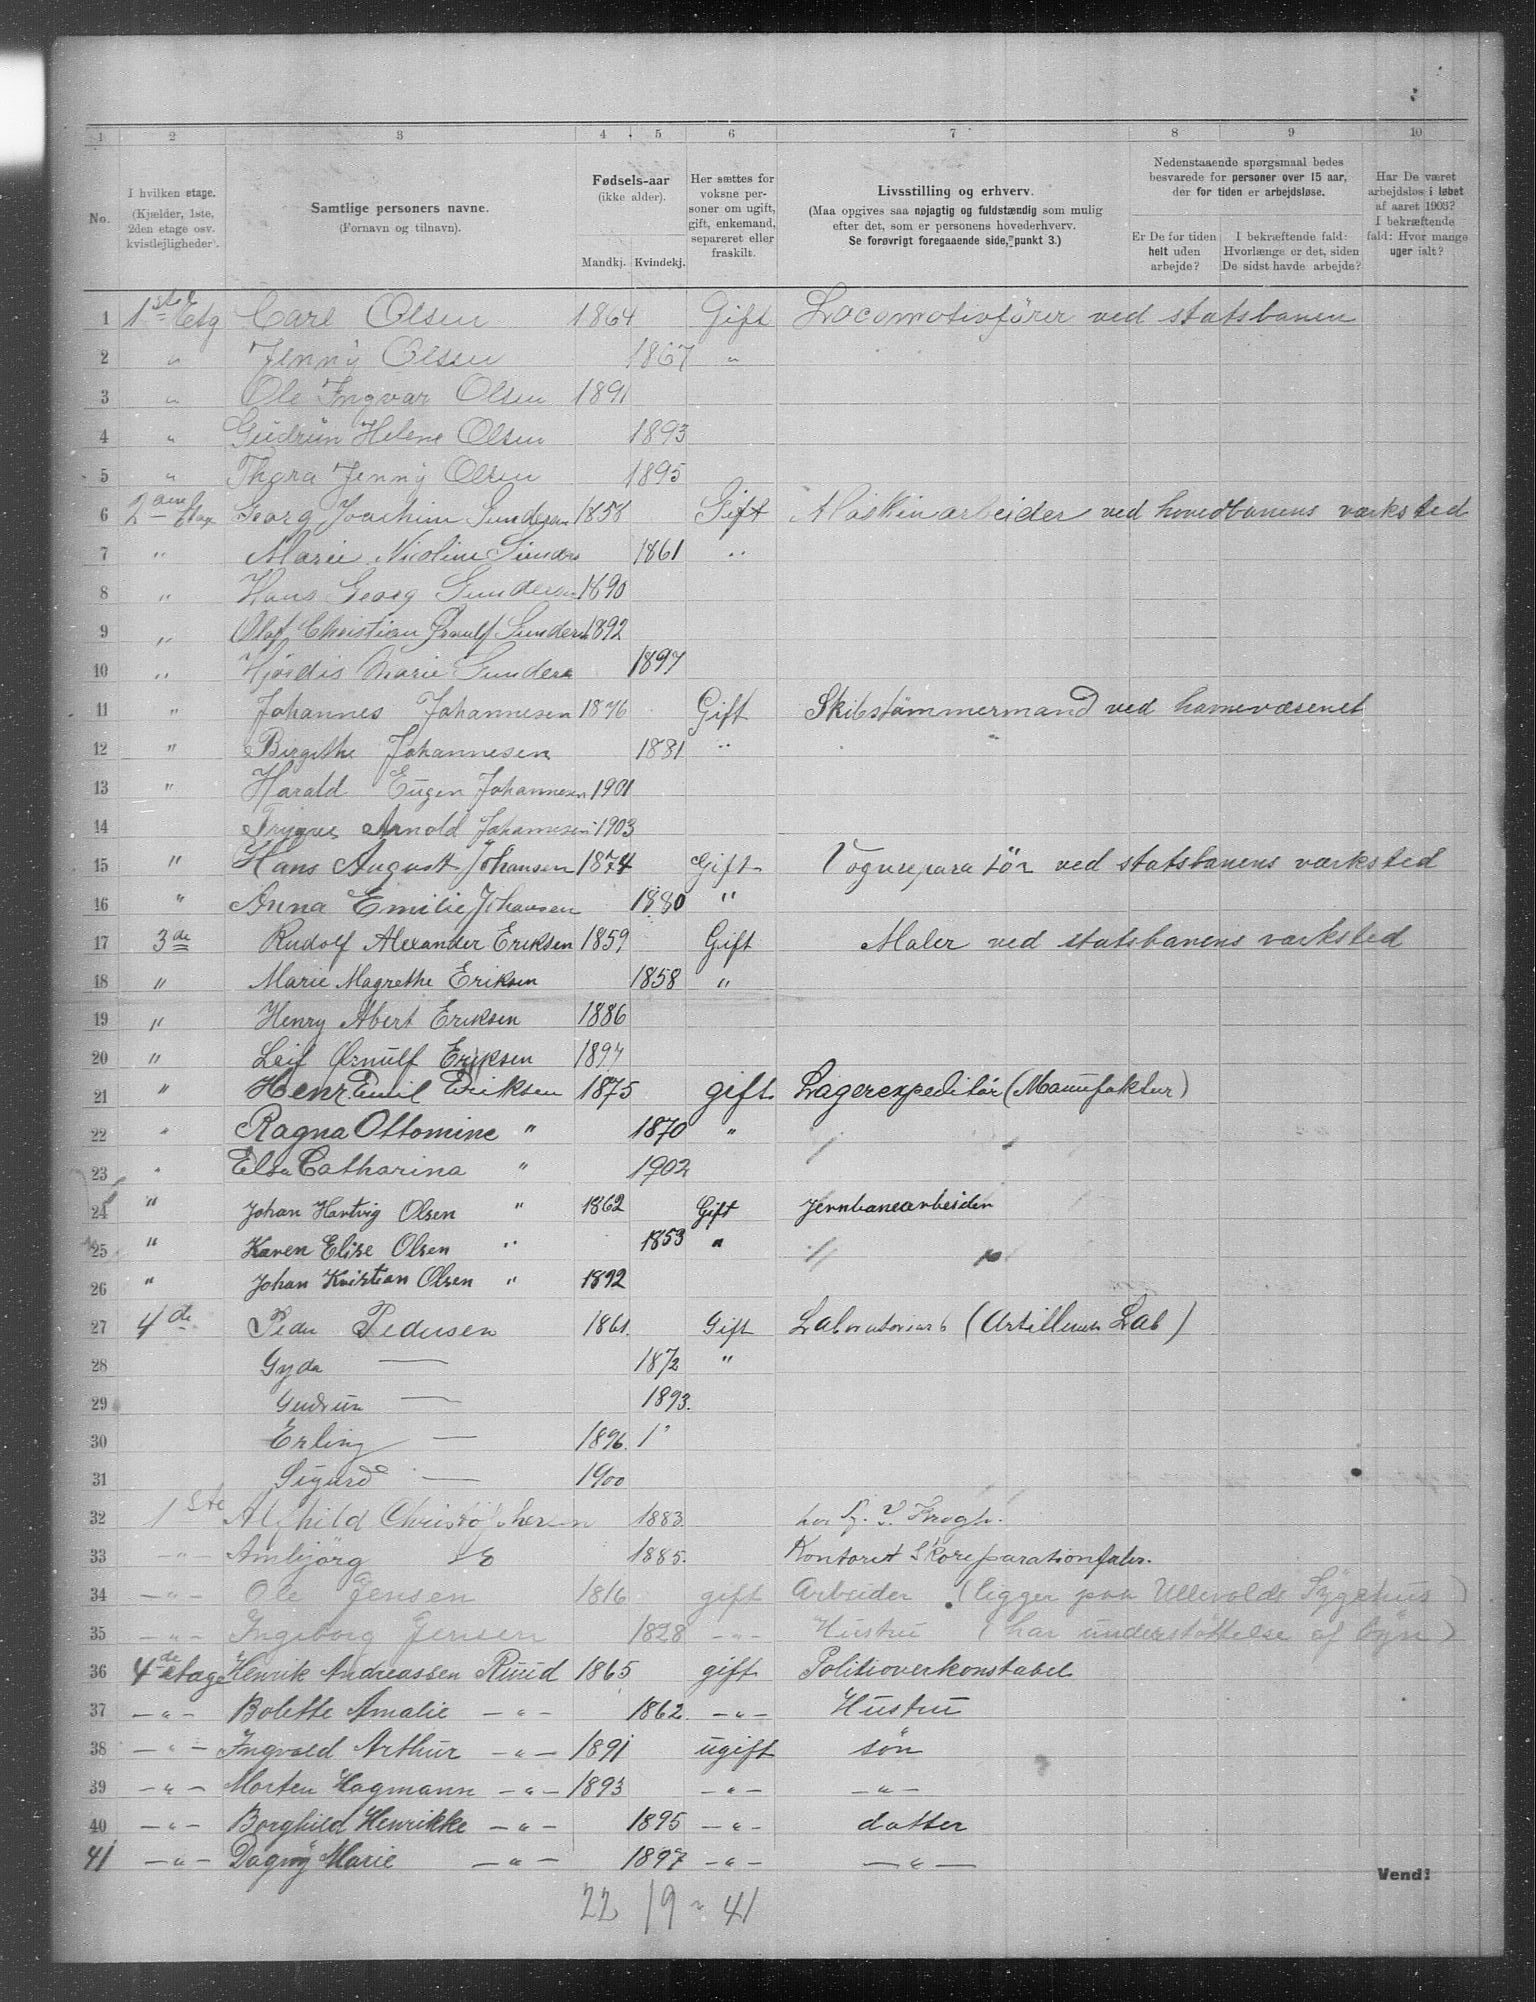 1 2 3 4 5 6 7 8 9 10
No.
I hvilken etage. (Kjælder, 1ste, 2den etage osv. kvistlejligheder).
Samtlige personers navne. (Fornavn og tilnavn).
Fødsels-aar (ikke alder).
Mandkj. Kvindekj.
Her sættes for voksne personer om ugift, gift, enkemand, separeret eller fraskilt.
Livsstilling og erhverv.
(Maa opgives saa nøjagtig og fuldstændig som mulig efter det, som er personens hovederhverv. Se forøvrigt foregaaende side, punkt 3.)
Nedenstaaende spørgsmaal bedes besvarede for personer over 15 aar, der for tiden er arbejdsløse.
Er De for tiden helt uden arbejde?
I bekræftende fald: Hvorlænge er det, siden De sidst havde arbejde?
Har De været arbejdsløs i løbet af aaret 1903? I bekræftende fald: Hvor mange uger ialt?
1 1ste Etg Carl Olsen 1864 Gift Locomotivfører ved statsbanen
2 " Jenny Olsen 1867 "
3 " Ole Ingvar Olsen 1891
4 " Gudrun Helene Olsen 1893
5 " Thora Jenny Olsen 1895
6 2den Etage Georg Joachim Gundersen 1858 Gift Maskinarbeider ved hovedbanens værksted
7 " Marie Nicoline Gunders 1861 "
8 " Hans Georg Gundersen 1890
9 " Olaf Christian Gunders 1892
10 " Hjørdis Marie Gunders 1897
11 " Johannes Johannesen 1876 Gift Skibstømmermand ved havnevæsenet
12 " Birgithe Johannesen 1881 " "
13 " Harald Eugen Johannesen 1901
14 Trygve Arnold Johannesen 1903
15 " Hans August Johansen 1874 Gift Vognreparatør ved statsbanens værksted
16 " Anna Emilie Johansen 1880 "
17 3de Rudolf Alexander Eriksen 1859 Gift Maler ved statsbanens værksted
18 " Marie Magrethe Eriksen 1858 "
19 " Henry Abert Eriksen 1886
20 " Leif Ørnulf Eriksen 1897
21 " Henr Emil Eriksen 1875 gift Lagerexpeditør (Manufaktur)
22 " Ragna Ottomine " 1870 "
23 " Elsa Catharina " 1902
24 " Johan Hartvig Olsen " 1862 Gift Jernbanearbeider
25 " Karen Elise Olsen " 1853 " " "
26 " Johan Kristian Olsen " 1892
27 4de Peder Pedersen 1861. Gift Laboratoriarb (Artilleriets Lab)
28 Gyda — 1872 "
29 Gudrun — 1893.
30 Erling — 1896. 1"
31 Sigurd — 1900
32 1ste Alfhild Christophersen 1883. hos Krogh.
33 — " — Ambjörg Do 1885. Kontoret Skoreparationfabr.
34 — " — Ole Jensen 1816 gift Arbeider (ligger paa Ullevolds Sygehus)
35 — " — Ingeborg Jensen 1828 — " — Hustru (har understøttelse af byn)
36 4de etage Henrik Andreassen Ruud 1865 gift Politioverkonstabel
37 — " — Bolette Amalie — " — 1862. — " — Hustru
38 — " — Ingvald Arthur — " — 1891 ugift søn
39 — " — Morten Hagmann — " — 1893 — " — — " —
40 — " — Borghild Henrikke — " — 1895 — " — datter
41 — " — Dagny Marie — " — 1897 — " — — " —
Vend!
22 19 ~ 41